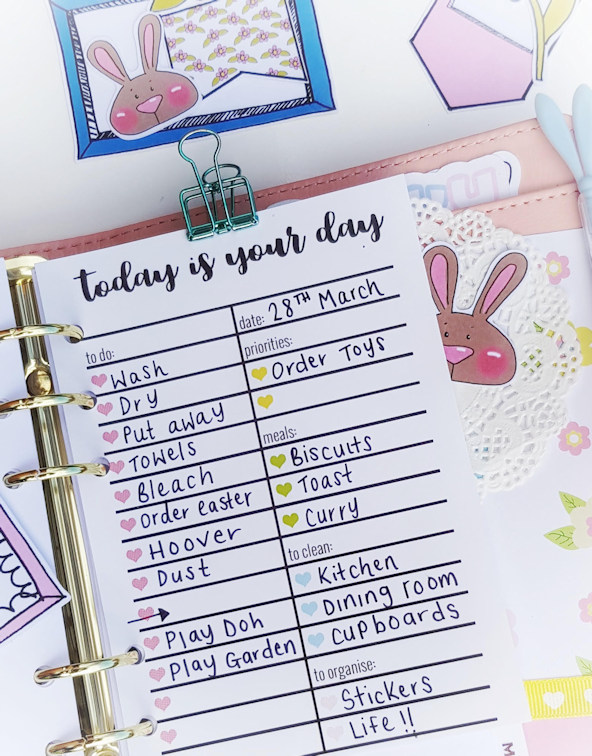 today is your day
date: 28TH March
to do:
Wash
Dry
Put away
Towels
Bleach
Order easter
Hoover
Dust
Play Doh
Play Garden
priorities:
Order Toys
meals:
Biscuits
Toast
Curry
to clean:
Kitchen
Dining room
Cupboards
to organise:
Stickers
Life!!